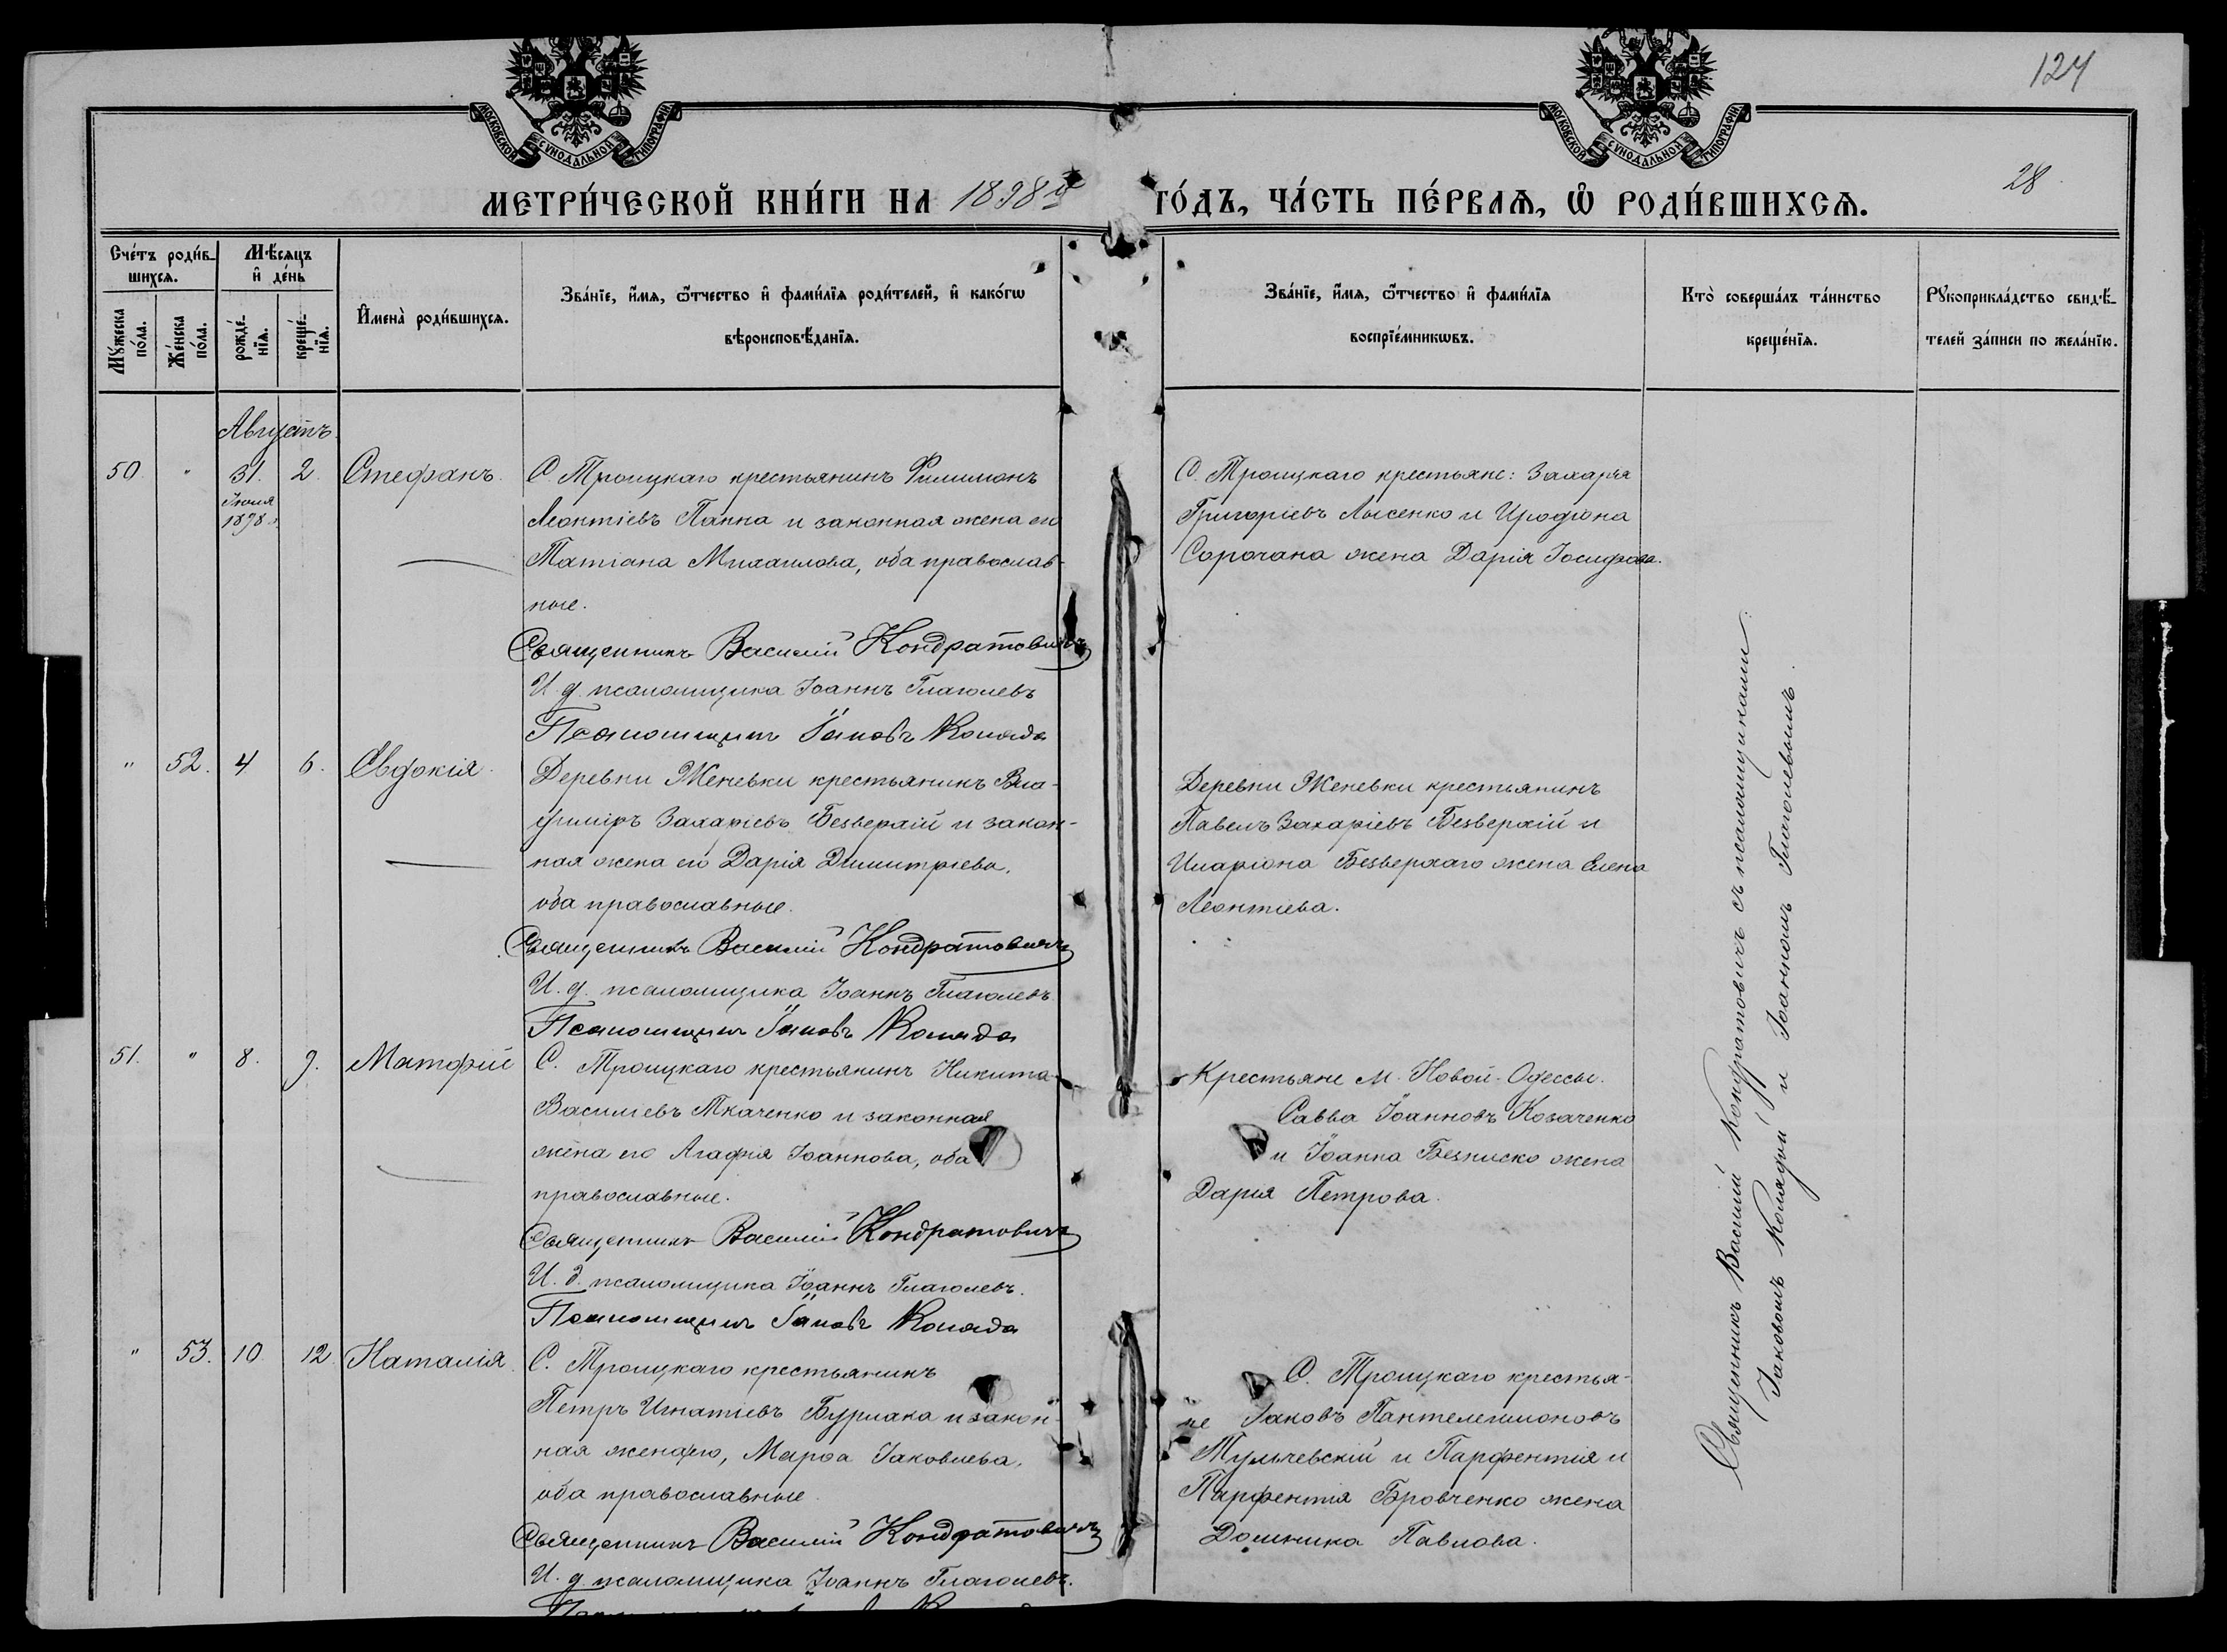 124
28
МОСКОВСКОЙ СѴНОДАЛЬНОЙ ТИПОГРАФІИ
МОСКОВСКОЙ СѴНОДАЛЬНОЙ ТИПОГРАФІИ
МЕТРИ́ЧЕСКОЙ КНИ́ГИ НА 1898й ГО́ДЪ, ЧА́СТЬ ПЕ́РВАѦ, Ѡ РОДИ́ВШИХСѦ.
Сче́тъ роди́в-
шихсѧ.
Мѣ́сѧцъ
и де́нь
Мꙋ́жеска
по́ла.
Же́нска
по́ла.
рожде́-
нїѧ.
креще́-
нїѧ.
И҆мена̀ роди́вшихсѧ.
Зва́нїе, и҆́мѧ, ѻ҆́тчество и҆ фами́лїѧ роди́телей, и҆ како́гѡ
вѣроисповѣ́данїѧ.
Зва́нїе, и҆́мѧ, ѻ҆́тчество и҆ фами́лїѧ
воспрїе́мникѡвъ.
Кто̀ соверша́лъ та́инство
креще́нїѧ.
Рꙋкоприкла́дство свидѣ́-
телей за́писи по жела́нїю.
Августъ.
50 " 31. 2. Стефанъ.
Іюля
1898 г.
С. Троицкаго крестьянинъ Филимонъ
Леонтіевъ Папка и законная жена его
Татіана Михаилова, оба православ-
ные.
Священникъ Василій Кондратовичъ
И. д. псаломщика Іоаннъ Глаголевъ
Псаломщикъ Іаковъ Коляда
С. Троицкаго крестьяне: Захарія
Григоріевъ Лысенко и Иродіона
Сорочана жена Дарія Іосифова.
" 52. 4 6. Евдокія.
Деревни Женевки крестьянинъ Вла-
диміръ Захаріевъ Безверхій и закон-
ная жена его Дарія Димитріева,
оба православные.
Священникъ Василій Кондратовичъ
И. д. псаломщика Іоаннъ Глаголевъ.
Псаломщикъ Іаковъ Коляда
Деревни Женевки крестьянинъ
Павелъ Захаріевъ Безверхій и
Иларіона Безверхаго жена Елена
Леонтіева.
51. " 8. 9. Матфій
С. Троицкаго крестьянинъ Никита
Василіевъ Ткаченко и законная
жена его Агафія Іоаннова, оба
православные.
Священникъ Василій Кондратовичъ
И. д. псаломщика Іоаннъ Глаголевъ.
Псаломщикъ Іаковъ Коляда
Крестьяне м. Новой-Одессы.
Савва Іоанновъ Козаченко
и Іоанна Безниско жена
Дарія Петрова.
" 53. 10 12. Наталія.
С. Троицкаго крестьянинъ
Петръ Игнатіевъ Бурлака и закон-
ная жена его, Марѳа Іаковлева,
оба православные.
Священникъ Василій Кондратовичъ
И. д. псаломщика Іоаннъ Глаголевъ.
С. Троицкаго крестья-
не Іаковъ Пантелеимоновъ
Тульчевскій и Парфентія и
Парфентія Бровченко жена
Домника Павлова.
Священникъ Василій Кондратовичъ съ псаломщиками
Іаковомъ Колядой и Іоанномъ Глаголевымъ.